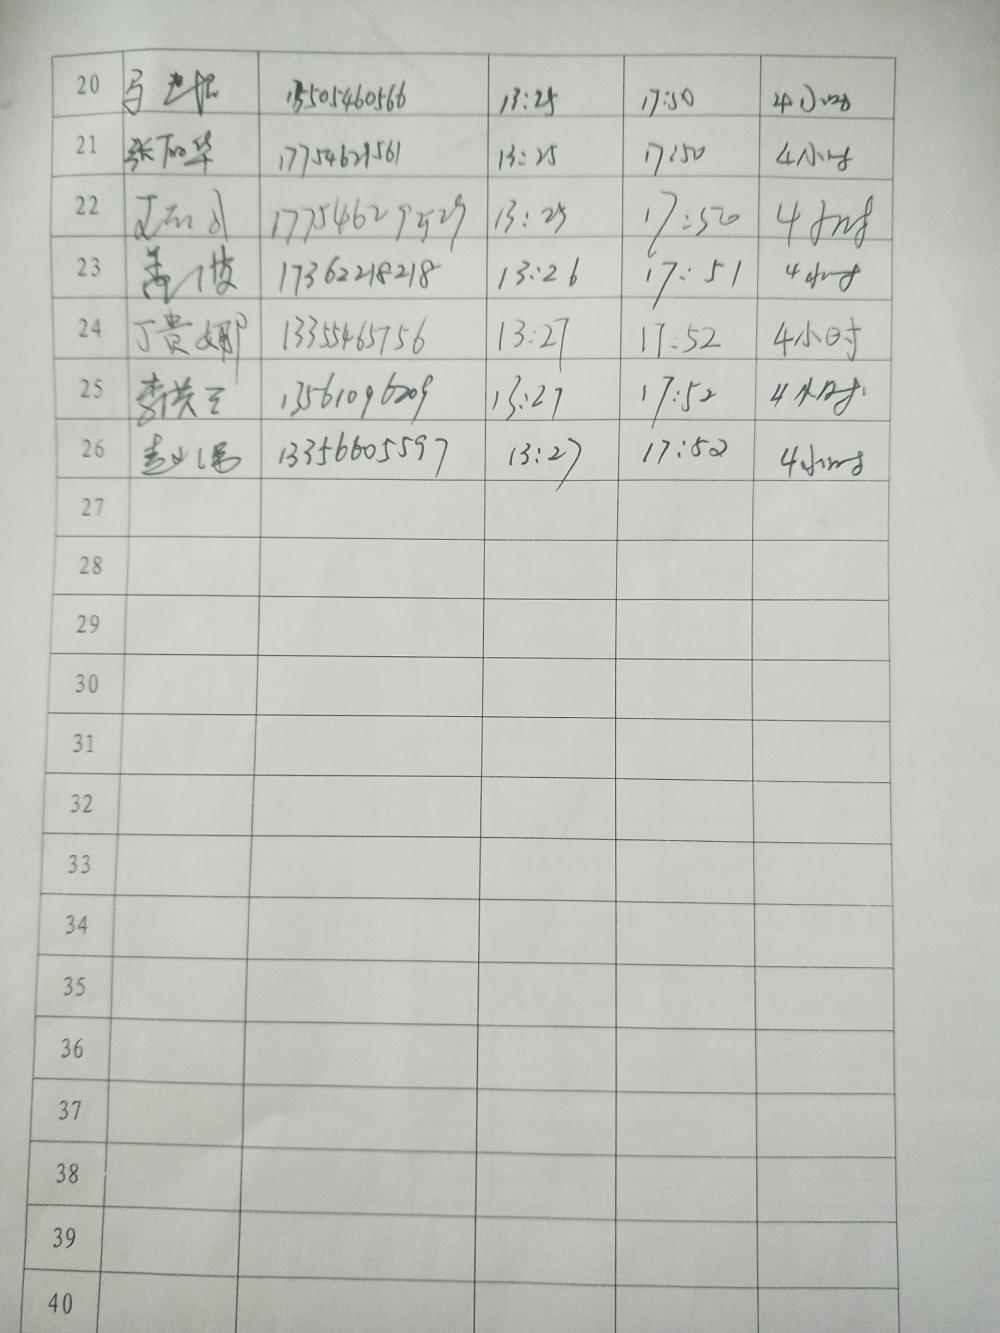 20 马 13505460566 13:25 17:50 4小时
21 张丽华 17754629561 13:25 17:50 4小时
22 17754629529 13:25 17:50 4小时
23 17362218218 13:26 17:51 4小时
24 丁贵娜 13355465756 13:27 17:52 4小时
25 李洪玉 13561096209 13:27 17:52 4小时
26 13356605597 13:27 17:52 4小时
27
28
29
30
31
32
33
34
35
36
37
38
39
40